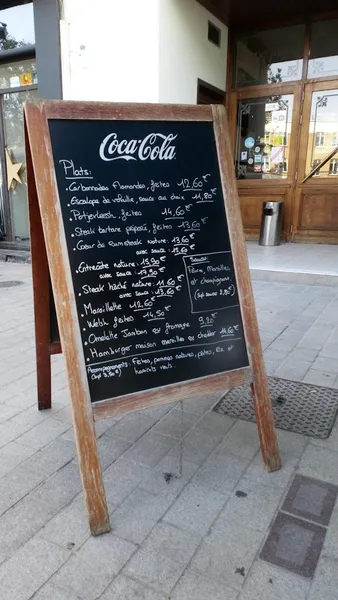 Coca-Cola
Plats:
Carbonnades Flamandes, frites 12,60€
Escalope de volaille, sauce au choix 11,80€
Potjevleesch, frites 14,60€
Steak tartare préparé, frites 13,60€
Cœur de rumsteak nature: 13,60€
avec sauce: 15,60€
Entrecôte nature: 15,90€
avec sauce: 17,90€
Steak haché nature: 11,60€
avec sauce: 13,60€
Maroillette 12,60€
Welsh frites 14,50€
Omelette Jambon ou fromage 9,20€
Hamburger maison maroilles ou cheddar 14,60€
Sauces:
Poivre, Maroilles
et champignons
(Supl sauce 2,80€)
Accompagnements: Frites, pommes natures, pâtes, riz et
(Supl 3,50€) haricots verts.